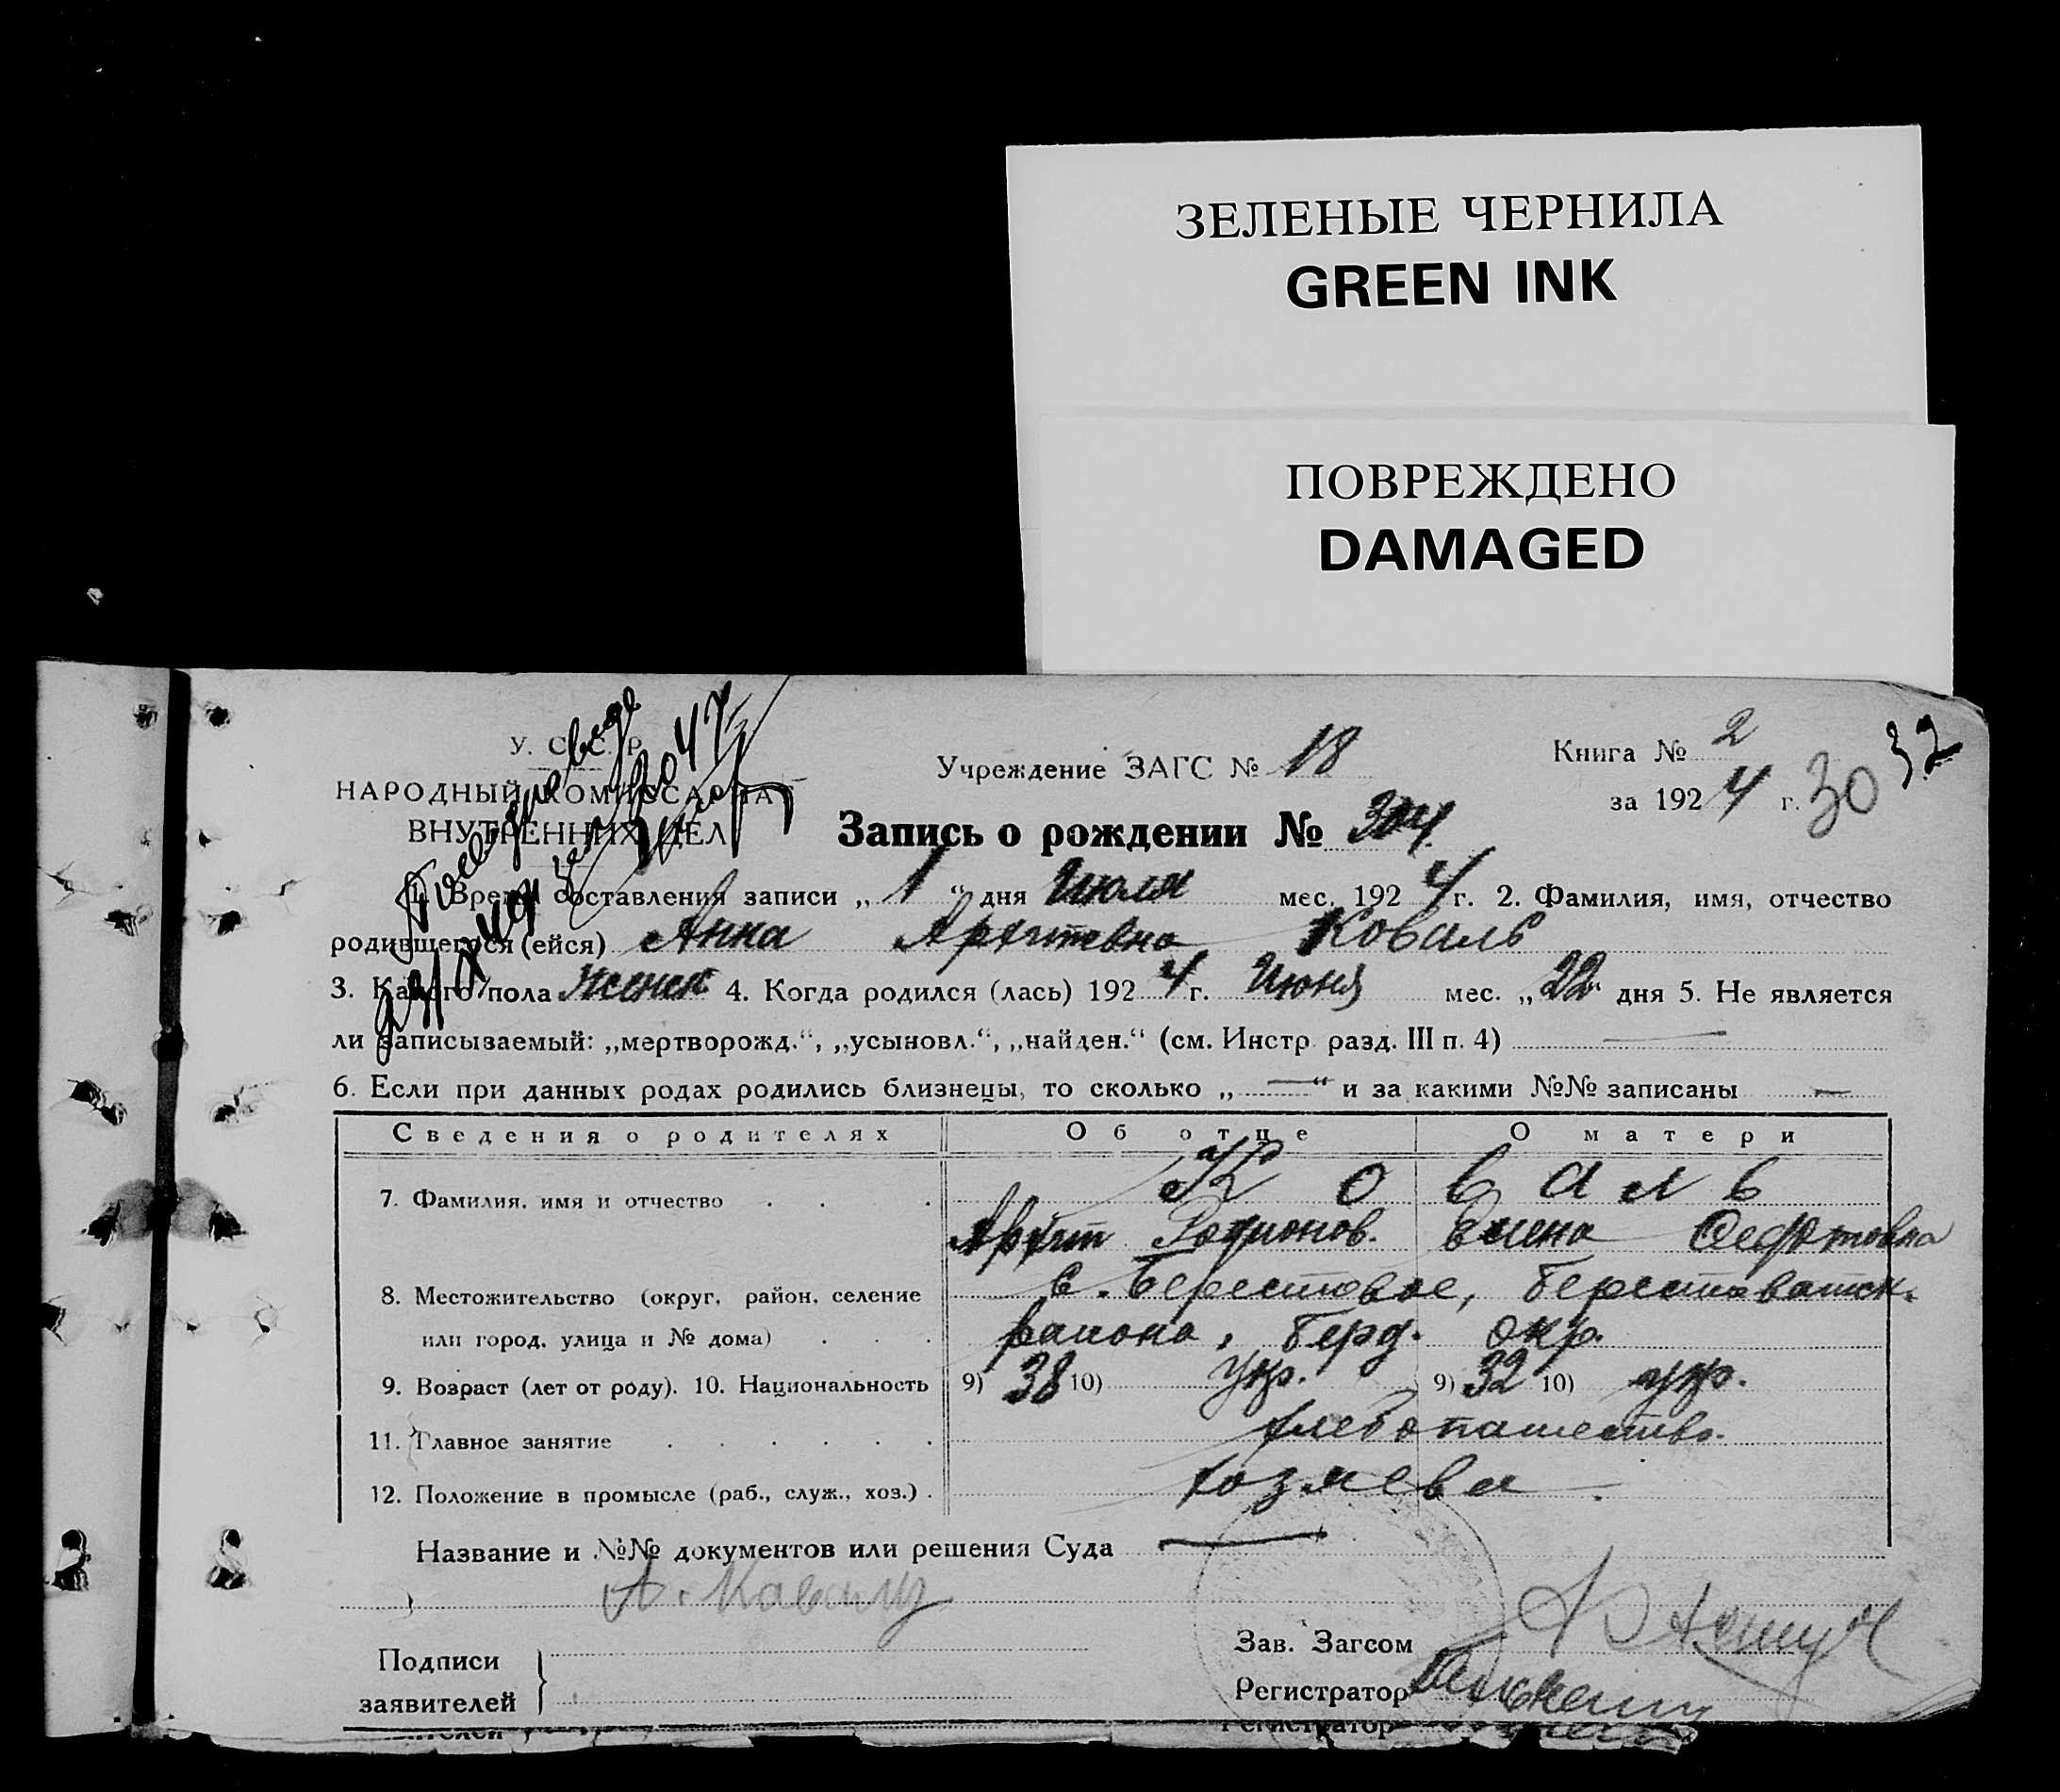 ЗЕЛЕНЫЕ ЧЕРНИЛА
GREEN INK
ПОВРЕЖДЕНО
DAMAGED
У. С. С. Р.
НАРОДНЫЙ КОМИССАРИАТ
ВНУТРЕННИХ ДЕЛ
Учреждение ЗАГС № 18
Книга № 2
32
за 1924 г. 30
Запись о рождении № 304
1. Время составления записи „ 1 “ дня Июля мес. 1924 г. 2. Фамилия, имя, отчество
родившегося (ейся) Анна Архитовна Коваль
3. Какого пола женск 4. Когда родился (лась) 1924 г. Июня мес. „22“ дня 5. Не является
ли записываемый: „мертворожд.“, „усыновл.“, „найден.“ (см. Инстр. разд. III п. 4) —
6. Если при данных родах родились близнецы, то сколько „—“ и за какими №№ записаны —
Сведения о родителях Об отце О матери
7. Фамилия, имя и отчество Коваль
Архит Родионов. Елена
8. Местожительство (округ, район, селение с. Берестовое, Берестоватск.
или город, улица и № дома) района, Берд. окр.
9. Возраст (лет от роду). 10. Национальность 9) 38 10) укр. 9) 32 10) укр.
11. Главное занятие хлебопашество.
12. Положение в промысле (раб., служ., хоз.) хозяева.
Название и №№ документов или решения Суда —
А. Коваль
Зав. Загсом
Подписи
Регистратор
заявителей
Регистратор